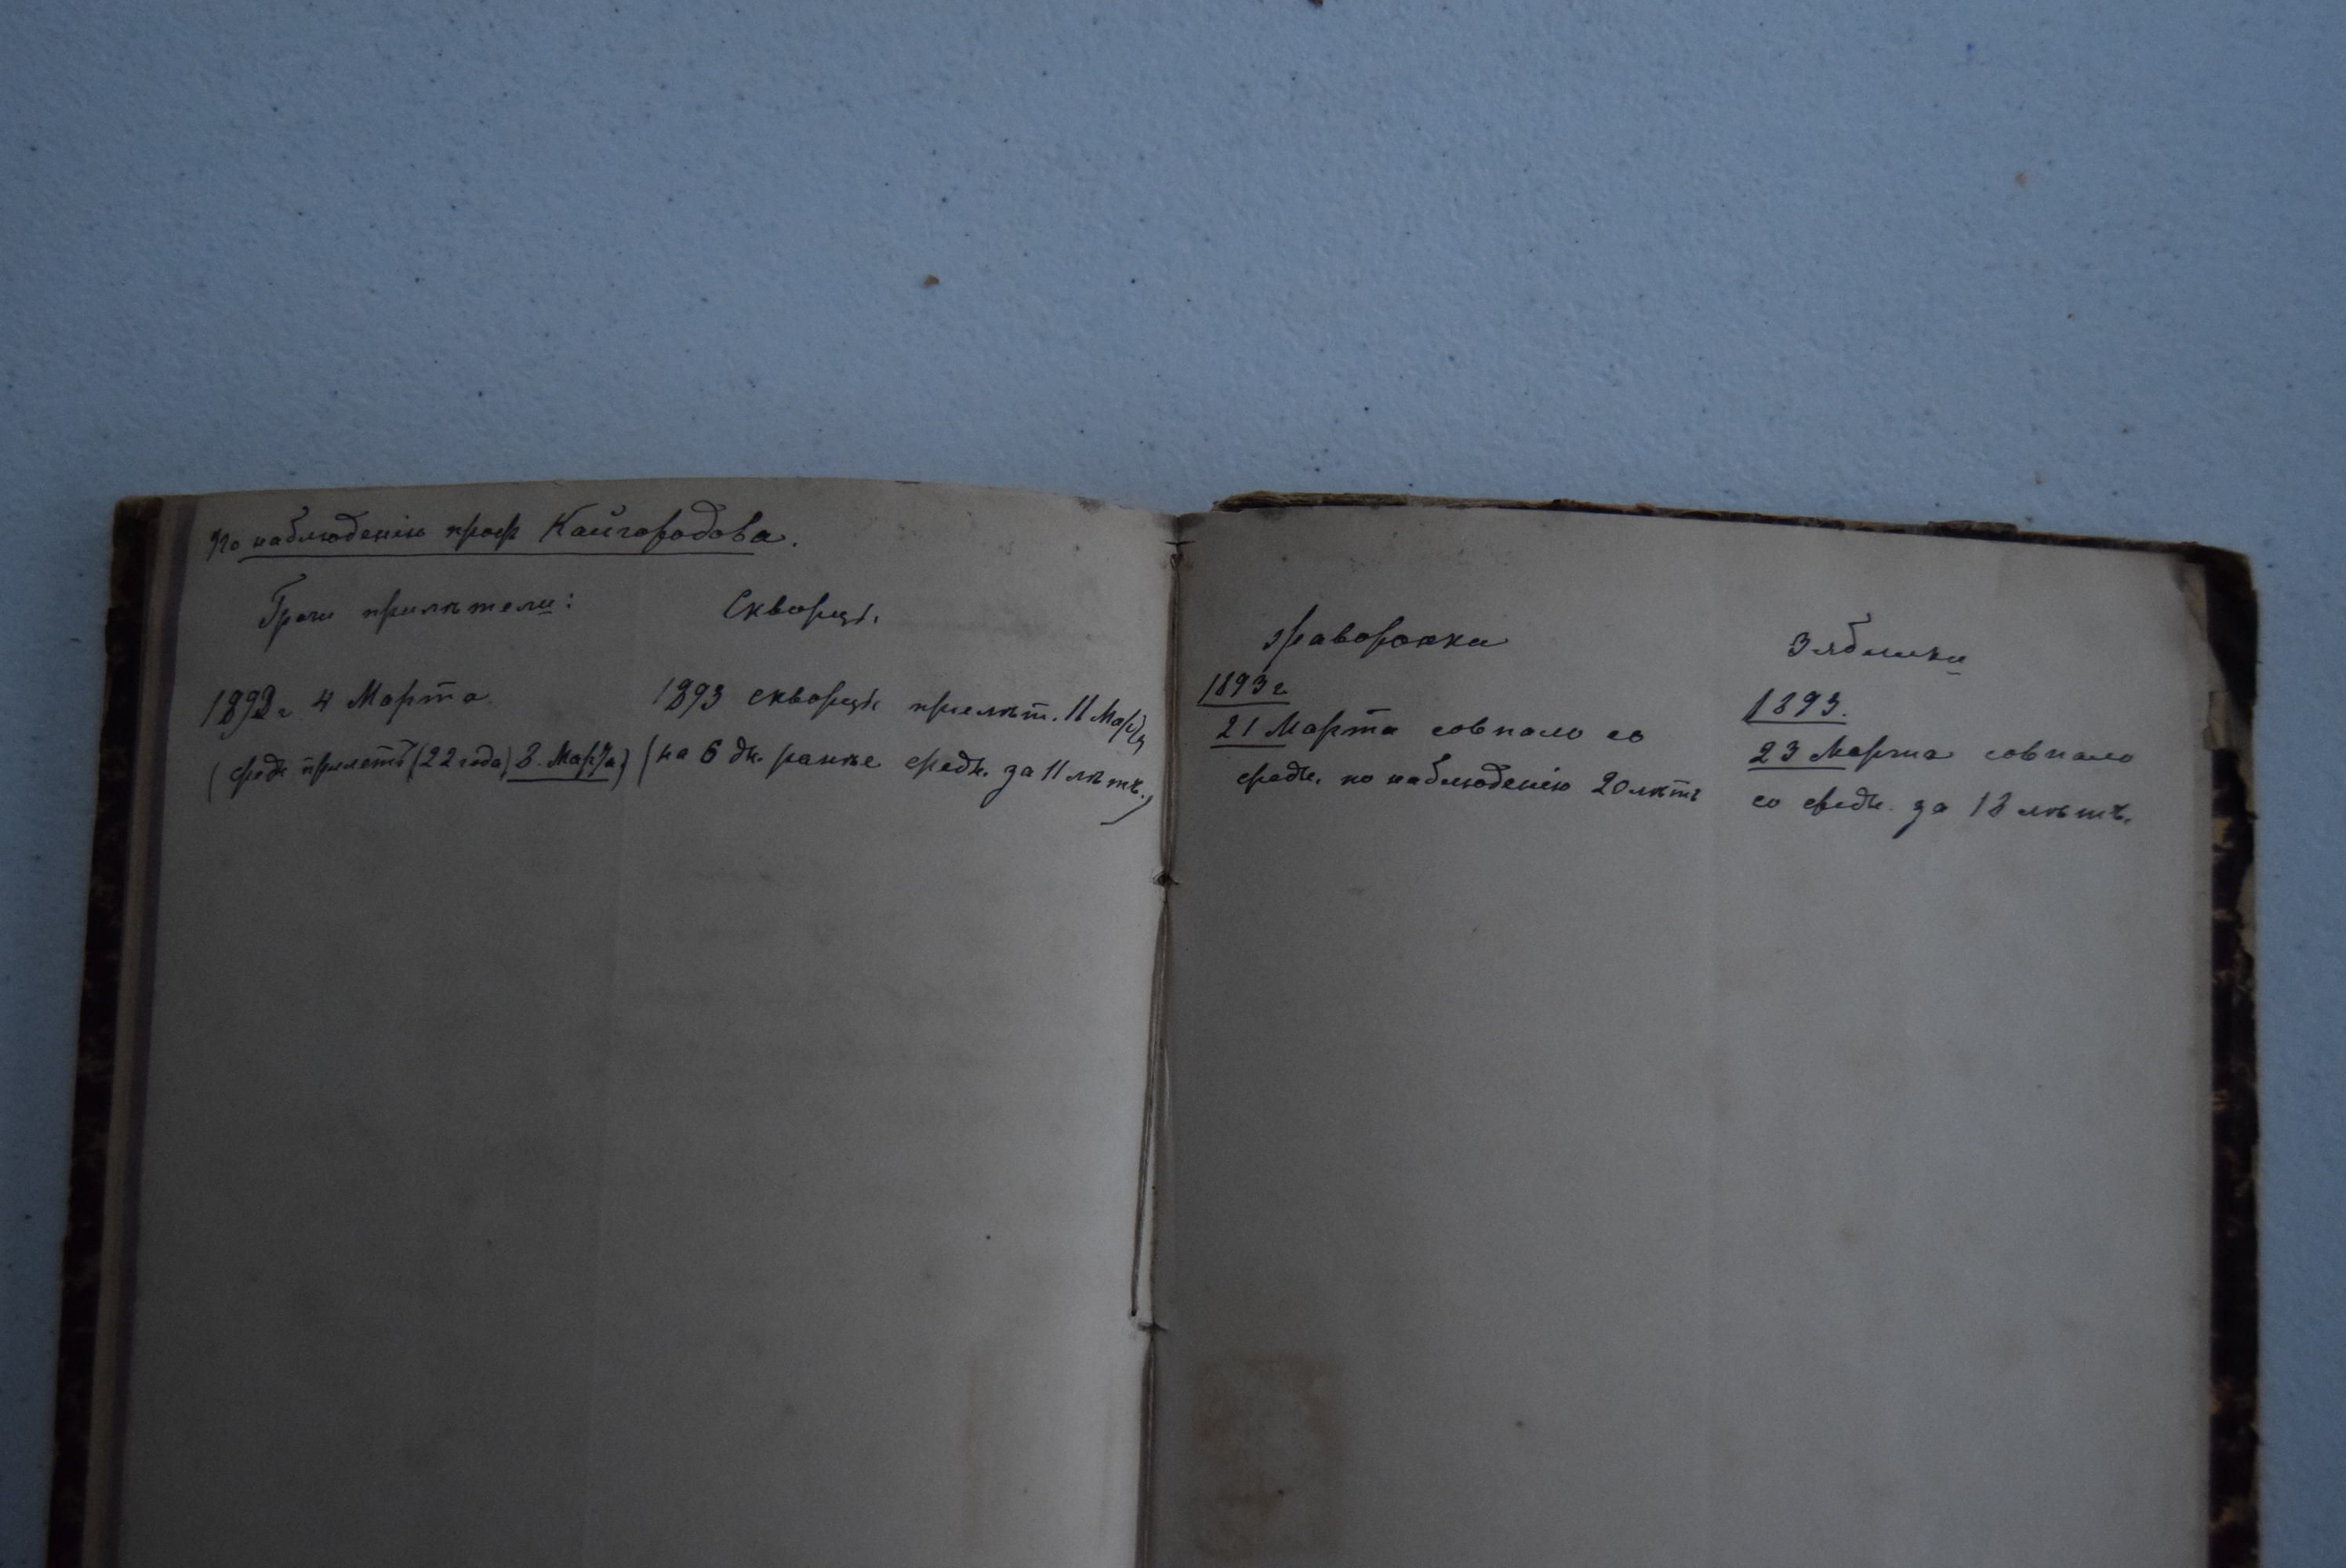 По наблюденію проф Кайгородова.
Грачи прилѣтели:
1893 г 4 Марта
(средн прилетъ (22 года) 3. Марта)
Скворцы.
1893 скворцы прилѣт. 11 Марта
(на 6 дн. ранѣе средн. за 11 лѣтъ.)
Жаворонки
1893 г.
21 Марта совпало со
средн. по наблюденію 20 лѣтъ
Зяблики
1893.
23 Марта совпало
со средн. за 18 лѣтъ.